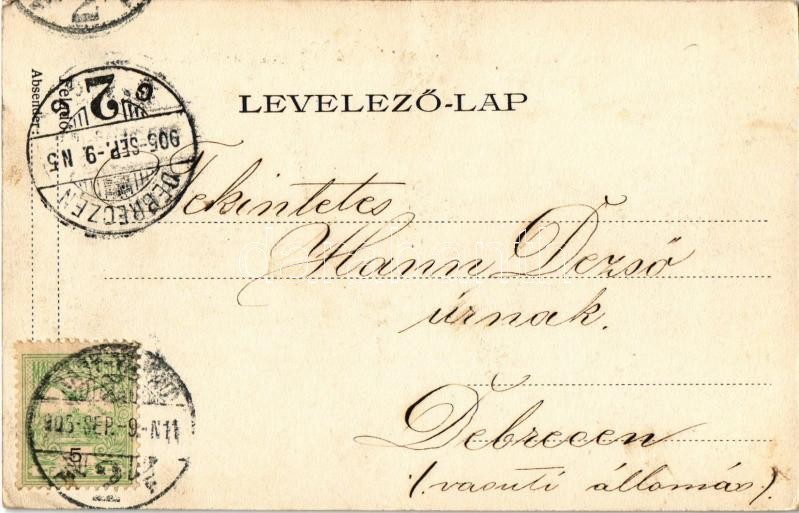 LEVELEZŐ-LAP
Absender:
DEBRECZEN
905-SEP.-9. N5
2
C
Tekintetes
Hann Dezső
úrnak.
Debrecen
(vasuti állomás)
905-SEP.-9-N11
5